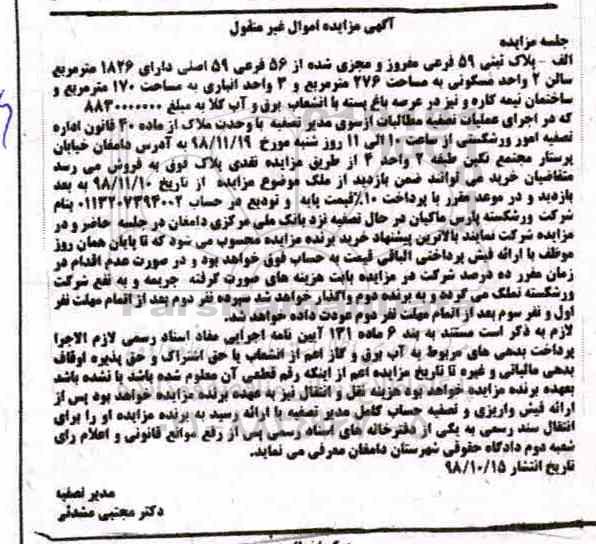 آگهی مزایده اموال غیر منقول
جلسه مزایده
الف - پلاک ثبتی ۵۹ فرعی مفروز و مجزی شده از ۵۶ فرعی ۵۹ اصلی دارای ۱۸۲۶ مترمربع
سالن ۲ واحد مسکونی به مساحت ۲۷۶ مترمربع و ۳ واحد انباری به مساحت ۱۷۰ مترمربع و
ساختمان نیمه کاره و نیز در عرصه باغ پسته با انشعاب برق و آب کلا به مبلغ ۸۸۳۰۰۰۰۰۰۰
که در اجرای عملیات تصفیه مطالبات ازسوی مدیر تصفیه با وحدت ملاک از ماده ۴۰ قانون اداره
تصفیه امور ورشکستی از ساعت ۱۰ الی ۱۱ روز شنبه مورخ ۹۸/۱۱/۱۹ به آدرس دامغان خیابان
پرستار مجتمع نگین طبقه ۲ واحد ۴ از طریق مزایده نقدی پلاک فوق به فروش می رسد
متقاضیان خرید می توانند ضمن بازدید از ملک موضوع مزایده از تاریخ ۹۸/۱۱/۱۰ به بعد
بازدید و در موعد مقرر با پرداخت ۱۰٪قیمت پایه و تودیع در حساب ۰۱۱۳۲۰۷۳۹۴۰۰۲ بنام
شرکت ورشکسته پارس ماکیان در حال تصفیه نزد بانک ملی مرکزی دامغان در جلسه حاضر و در
مزایده شرکت نمایند بالاترین پیشنهاد خرید برنده مزایده محسوب می شود که تا پایان همان روز
موظف با ارائه فیش پرداختی الباقی قیمت به حساب فوق خواهد بود و در صورت عدم اقدام در
زمان مقرر ده درصد شرکت در مزایده بابت هزینه های صورت گرفته جریمه و به نفع شرکت
ورشکسته تملک می گردد و به برنده دوم واگذار خواهد شد سپرده نفر دوم بعد از اتمام مهلت نفر
اول و نفر سوم بعد از اتمام مهلت نفر دوم عودت داده خواهد شد.
لازم به ذکر است مستند به بند ۶ ماده ۱۳۱ آیین نامه اجرایی مفاد اسناد رسمی لازم الاجرا
پرداخت بدهی های مربوط به آب برق و گاز اعم از انشعاب یا حق اشتراک و حق پذیره اوقاف
بدهی مالیاتی و غیره تا تاریخ مزایده اعم از اینکه رقم قطعی آن معلوم شده باشد یا نشده باشد
بعهده برنده مزایده خواهد بود هزینه نقل و انتقال نیز به عهده برنده مزایده خواهد بود پس از
ارائه فیش واریزی و تصفیه حساب کامل مدیر تصفیه با ارائه رسید به برنده مزایده او را برای
انتقال سند رسمی به یکی از دفترخانه های اسناد رسمی پس از رفع موانع قانونی و اعلام رای
شعبه دوم دادگاه حقوقی شهرستان دامغان معرفی می نماید.
تاریخ انتشار ۹۸/۱۰/۱۵
مدیر تصفیه
دکتر مجتبی مشدئی